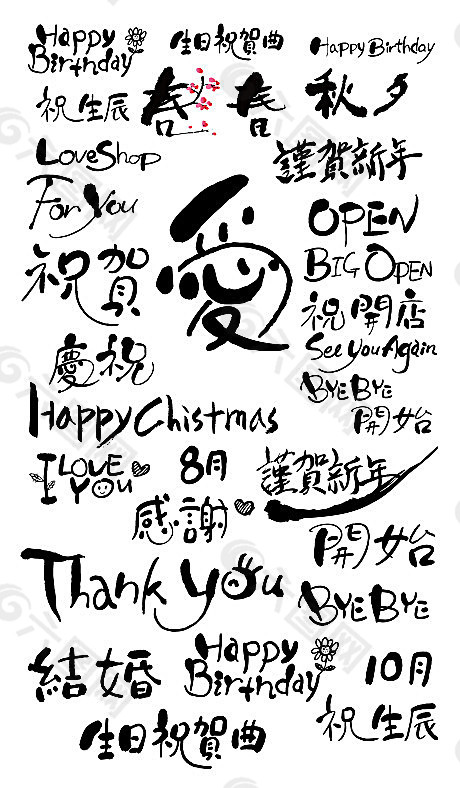 Happy Birthday
生日祝賀曲
Happy Birthday
祝生辰
春
春
秋夕
LoveShop
謹賀新年
For You
愛
OPEN
祝賀
BIG OPEN
祝開店
See You Again
慶祝
BYEBYE
開始
Happy Chistmas
I LOVE YOU
8月
謹賀新年
感謝
開始
Thank you
BYEBYE
結婚
Happy Birthday
10月
祝生辰
生日祝賀曲